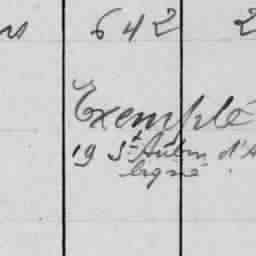 642 2
Exemplé
19 St Aubin d'A
ligné